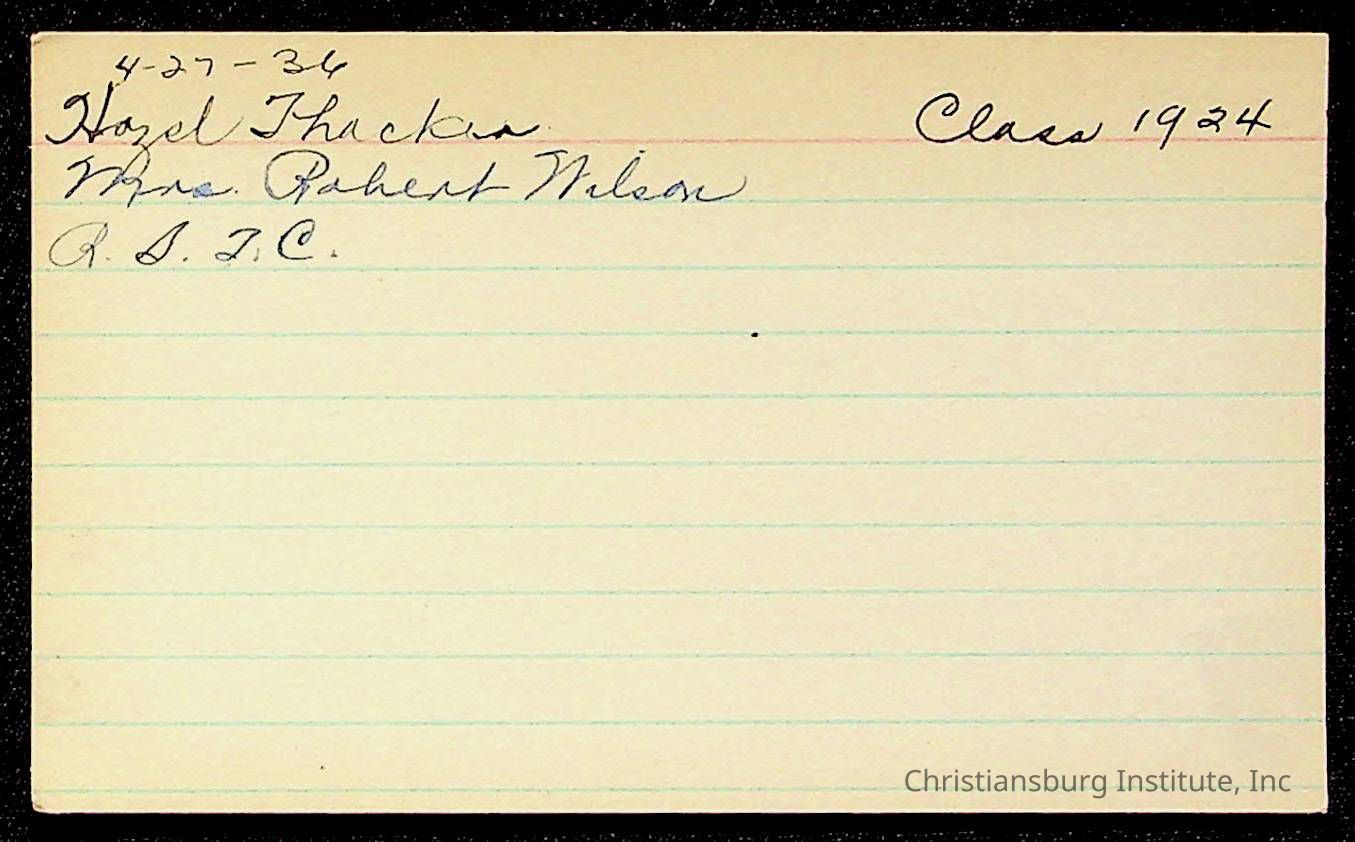 4-27-36
Hazel Thacker Class 1924
Mrs. Robert Wilson
R. S. T. C.
Christiansburg Institute, Inc